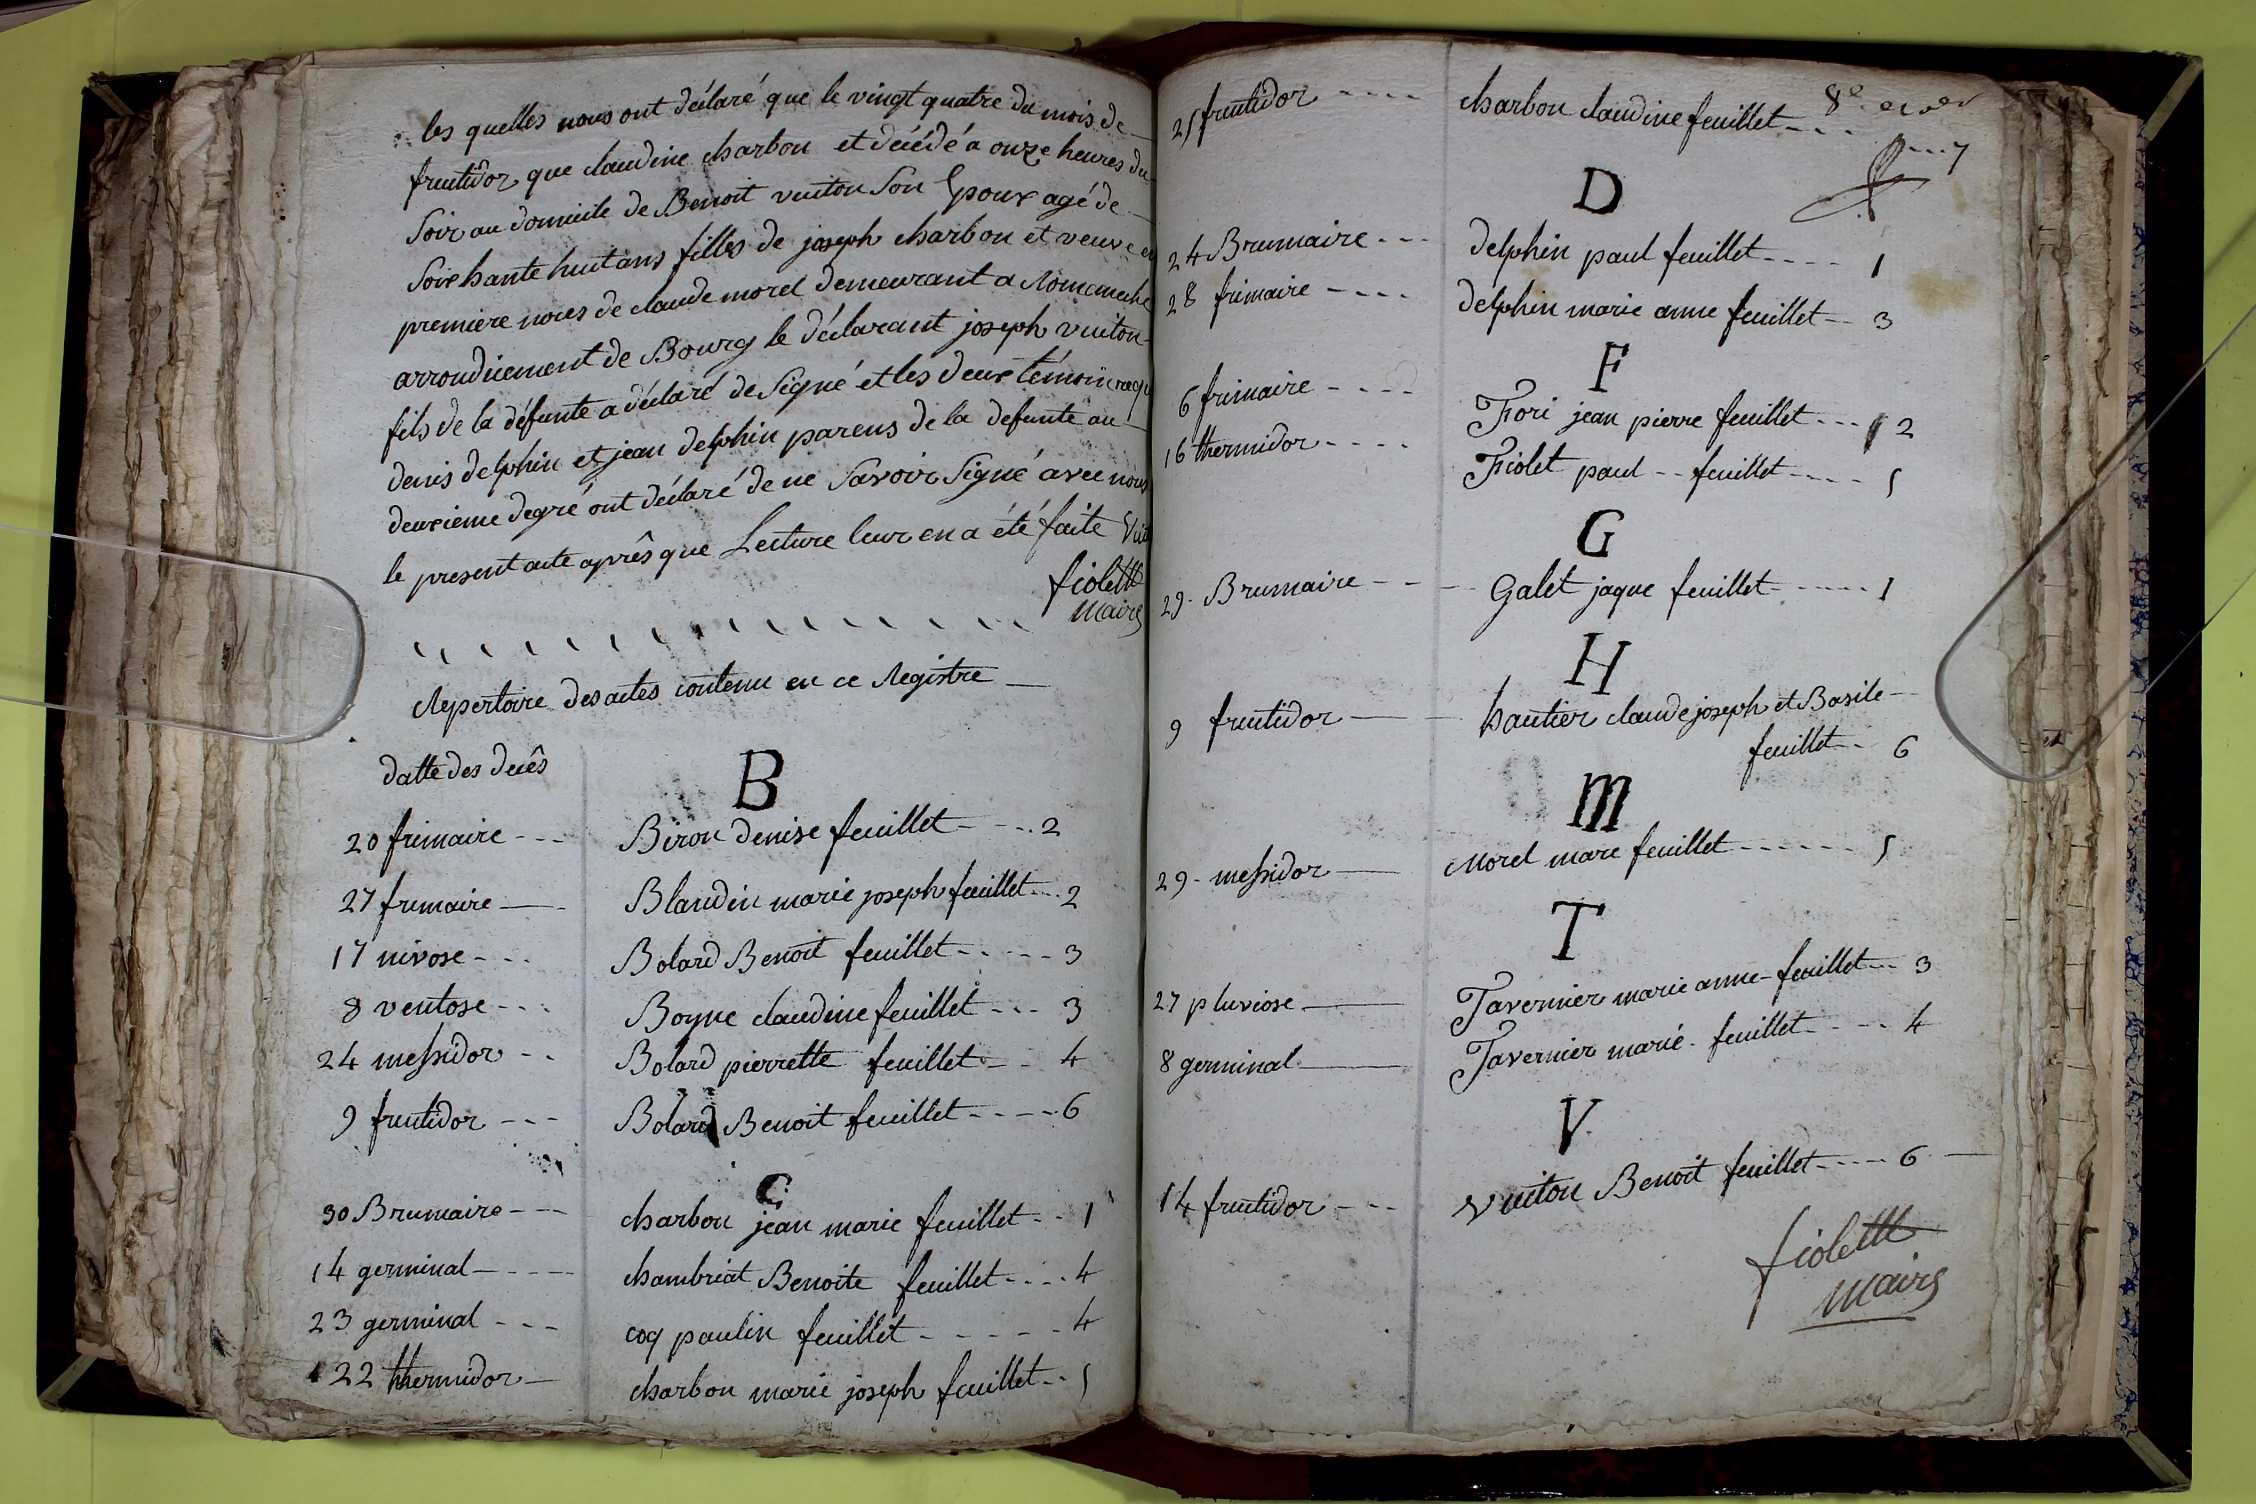 les quelles nous ont déclaré que le vingt quatre du mois de
fructidor que claudine charbon et décédé à onze heures du
soir au domicile de Benoit vuiton son Epoux agé de
soixhante huit ans filles de joseph charbon et veuve en
premiere noces de claude morel demeurant a
arrondicement de Bourg le déclarant joseph vuiton
fils de la défunte a déclaré de signé et les deux témoin
denis delphin et jean delphin parens de la defunte au
deuxieme degré ont déclaré de ne savoir signé avec nous
le present acte après que Lecture leur en a été faite
fiolett
maire
Repertoire des actes contenu en ce Registre
datte des decês
B
20 frimaire - - - Biron denise feuillet - - - 2
27 frimaire - Blandin marie joseph feuillet - - - 2
17 nivose - - - Bolard Benoit feuillet - - - - - 3
8 ventose - - - Boyne claudine feuillet - - - 3
24 messidor - - Bolard pierrette feuillet - - 4
9 fructidor - - - Bolard Benoit feuillet - - - - - 6
C
30 Brumaire - - - charbon jean marie feuillet - - 1
14 germinal - - - - chambriat Benoite feuillet - - - - 4
23 germinal - - - coq paulin feuillet - - - - - - 4
22 thermidor - charbon marie joseph feuillet - - 5
8e
25 fructidor - - - - charbon claudine feuillet - - - - - - 7
D
24 Brumaire - - - delphin paul feuillet - - - - 1
28 frimaire - - - - delphin marie anne feuillet - - 3
F
6 frimaire - - - - Fori jean pierre feuillet - - - 2
16 thermidor - - - - Fiolet paul - - feuillet - - - - 5
G
29 - Brumaire - - - Galet jaque feuillet - - - - - - 1
H
9 fructidor - - hautier claude joseph et Basile -
feuillet - - 6
M
29 - messidor - Morel marc feuillet - - - - - - 5
T
27 pluviose - Tavernier marie anne - feuillet - - - 3
8 germinal - Tavernier marie - feuillet - - - - 4
V
14 fructidor - - - Vuiton Benoit feuillet - - - - 6 -
fiolett
maire